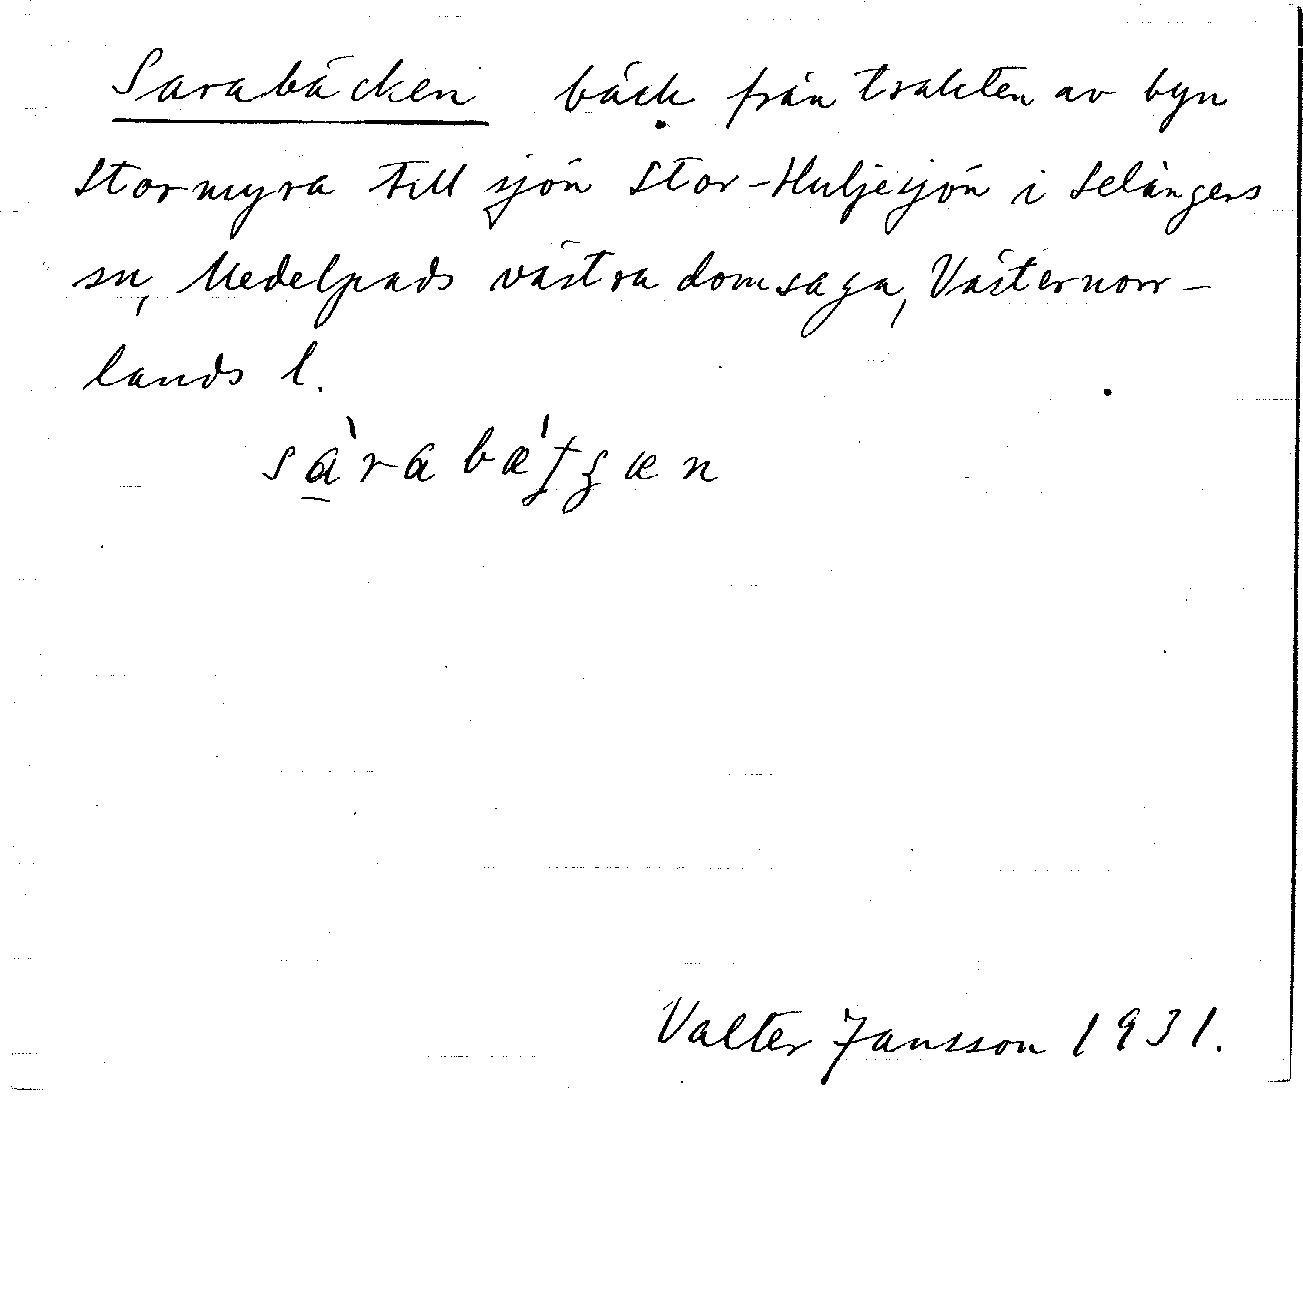 Sarabäcken bäck från trakten av byn
Stormyra till sjön Stor-Huljesjön i Selångers
sn, Medelpads västra domsaga, Västernorr-
lands l.
Valter Jansson 1931.